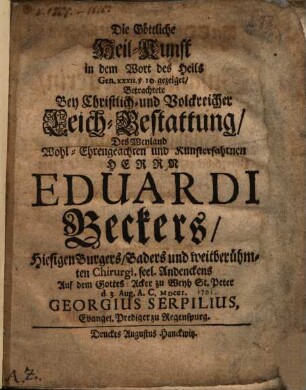 Die Göttliche
Heil-Kunst
in dem Wort des Heils
Gen. XXXII. ꝟ 10. gezeiget/
Betrachtete
Bey Christlich-und Volckreicher
Leich-Bestattung/
Des Weyland
Wohl-Ehrengeachten und Kunsterfahrnen
HERRN
EDUARDI
Beckers/
Hiesigen Burgers/Baders und weitberühm-
ten Chirurgi, seel. Andenckens
Auf dem Gottes-Acker zu Weyh St. Peter
d. 3. Aug. A. C. MDCCI. 1701.
GEORGIUS SERPILIUS,
Evangel. Prediger zu Regenspurg.
Druckts Augustus Hanckwitz.
A. Z.